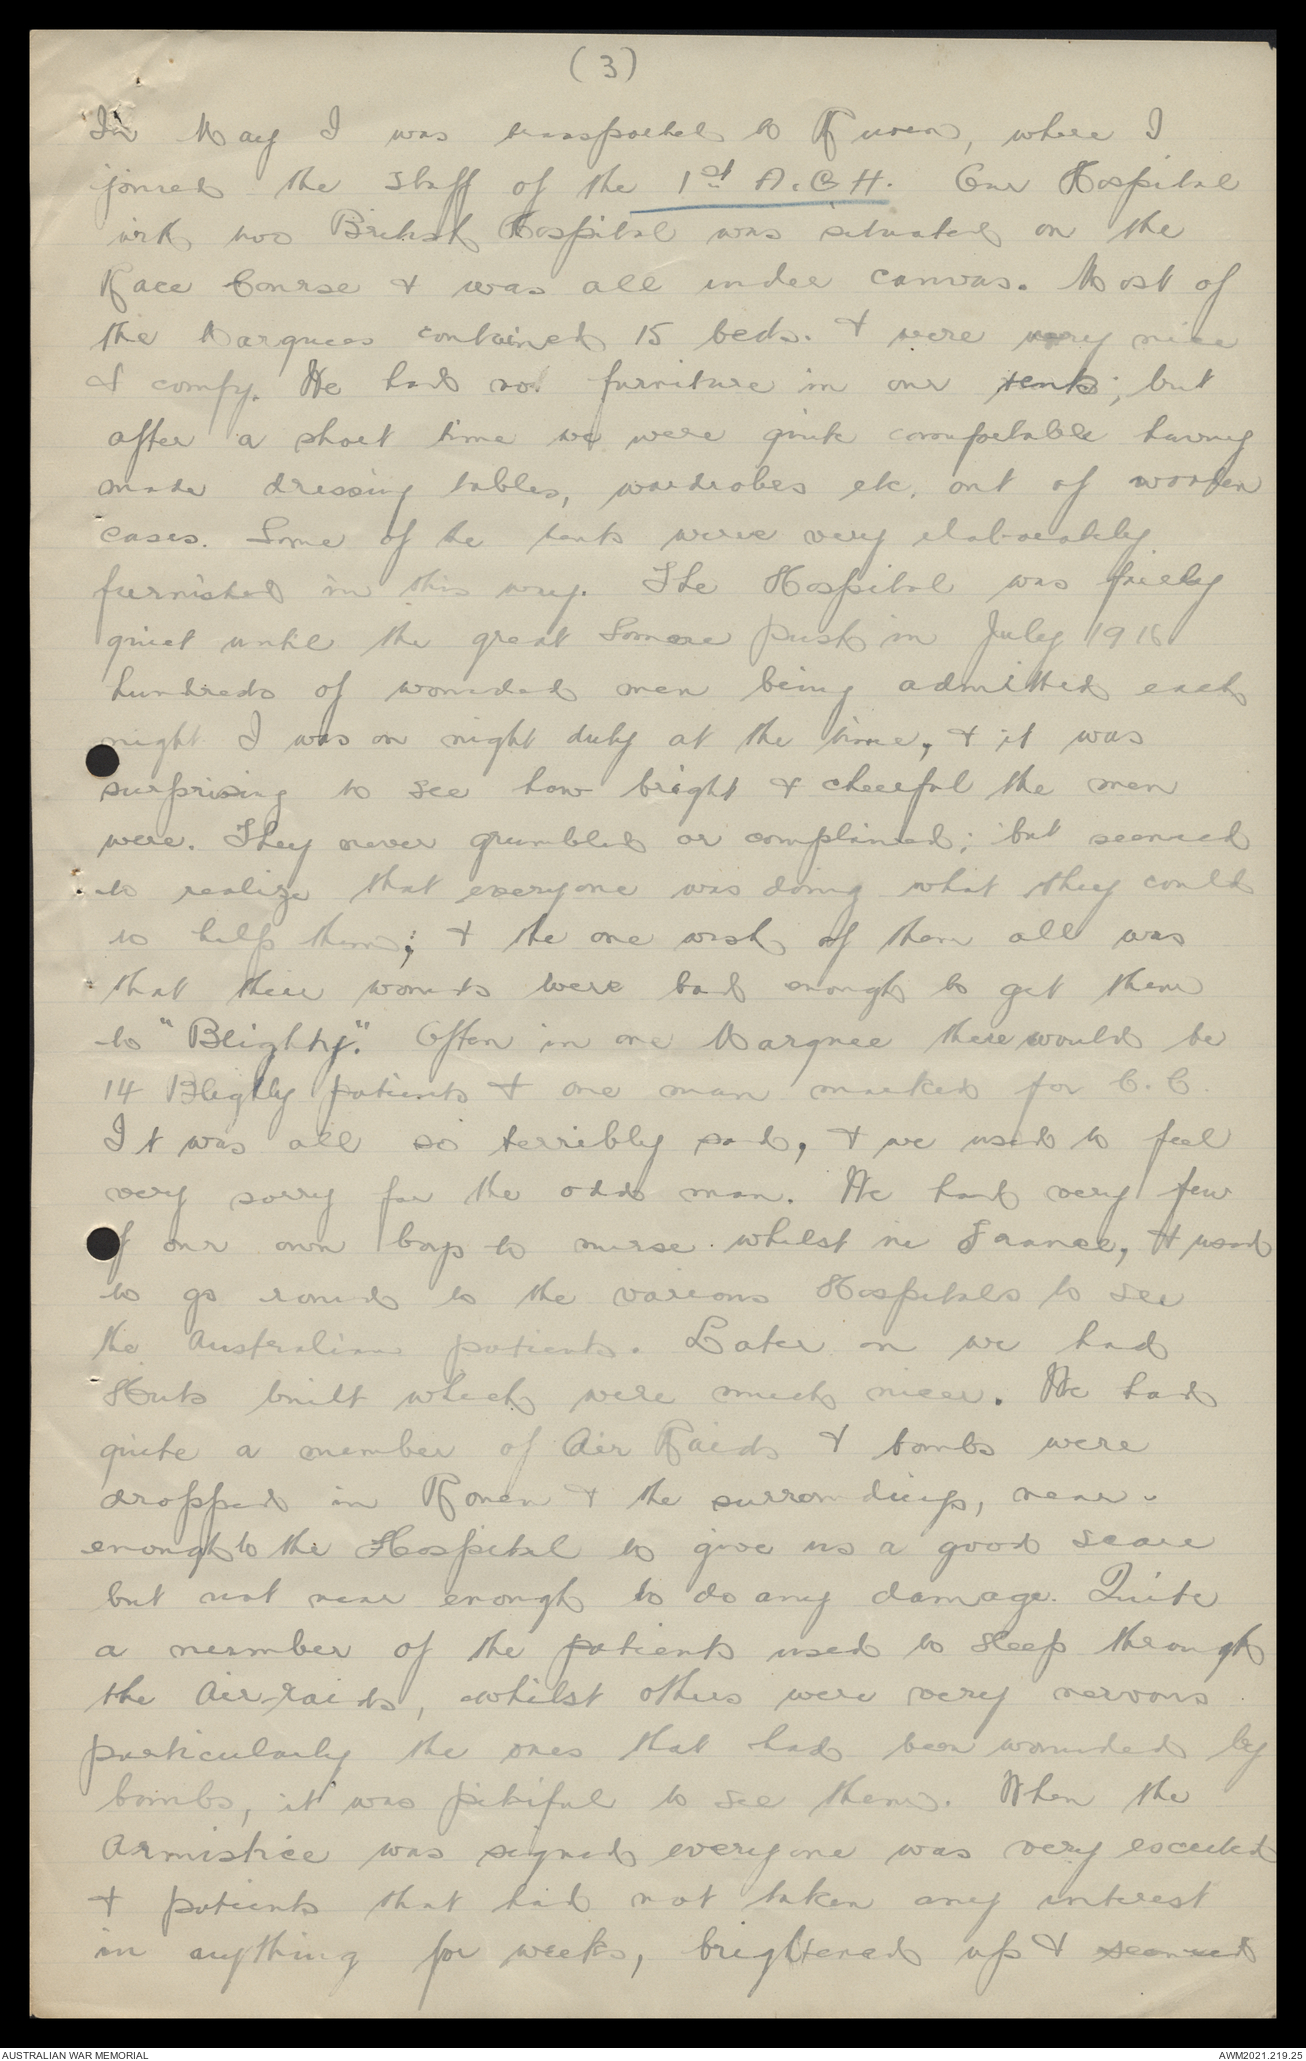 (3)
In May I was transported to Rouen, where I
joined the Staff of the 1st A.G.H. Our Hospital
with two British Hospital was situated on the
Race Course & was all under canvas. Most of
the Marquees contained 15 beds. & were very nice
& comfy. We had no furniture in our tents; but
after a short time we were quite comfortable having
made dressing tables, wardrobes etc. out of wooden
cases. Some of the tents were very elaborately
furnished in this way. The Hospital was fairly
quiet until the great Somme push in July 1916
hundreds of wounded men being admitted each
night I was on night duty at the time, & it was
surprising to see how bright & cheerful the men
were. They never grumbled or complained; but seemed
to realize that everyone was doing what they could
to help them; & the one wish of them all was
that their wounds were bad enough to get them
to "Blighty." Often in one Marquee there would be
14 Blighty patients & one man marked for C.C.
It was all so terribly sad, & we used to feel
very sorry for the odd man. We had very few
of our own boys to nurse whilst in France, & used
to go round to the various Hospitals to see
the Australian patients. Later on we had
Huts built which were much nicer. We had
quite a number of Air Raids & bombs were
dropped in Rouen & the surroundings, near
enough to the Hospital to give us a good scare
but not near enough to do any damage. Quite
a number of the patients used to sleep through
the Air-raids, whilst others were very nervous
particularly the ones that had been wounded by
bombs, it was pitiful to see them. When the
Armistice was signed everyone was very excited
& patients that had not taken any interest
in anything for weeks, brightened up & seemed
AUSTRALIAN WAR MEMORIAL
AWM2021.219.25